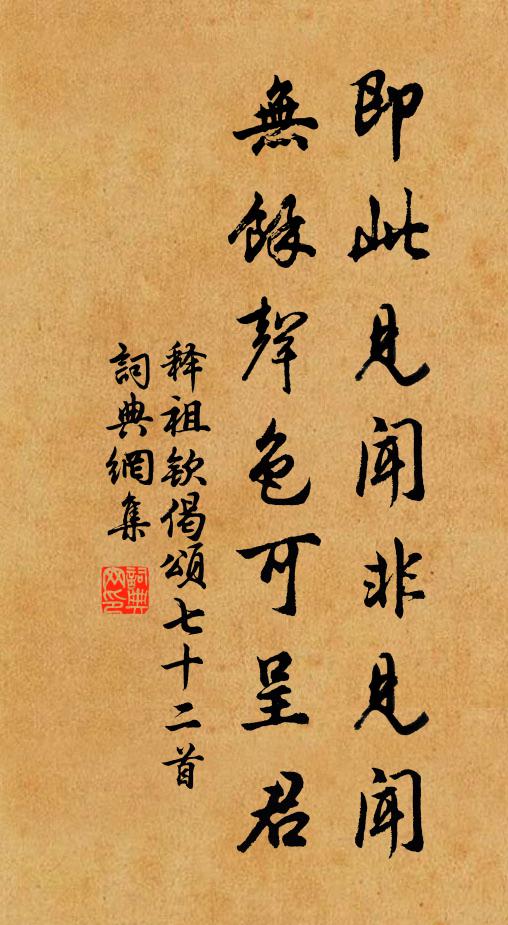 即此見聞非見聞
無餘聲色可呈君
释祖欽偈頌七十二首
詞典網集
詞典網印